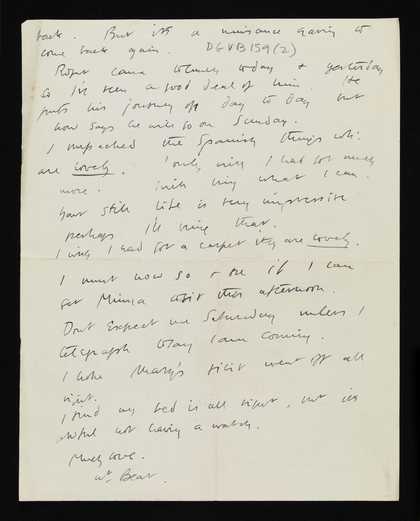 back. But it's a nuisance having to
come back again. DGVB159(2)
Roger came to lunch today & yesterday
so I've seen a good deal of him. He
puts his journey off day to day but
now says he will go on Sunday.
I unpacked the Spanish things wh:
are lovely. I only wish I had got much
more. I will bring what I can.
Your still life is very impressive
perhaps I'll bring that.
I wish I had got a carpet they are lovely.
I must now go & see if I can
get Mima this afternoon.
Dont expect me Saturday unless I
telegraph to say I am coming.
I hope Mary's visit went off all
right.
I find my bed is all right, but its
awful not having a watch.
Much love.
Yr Bear.